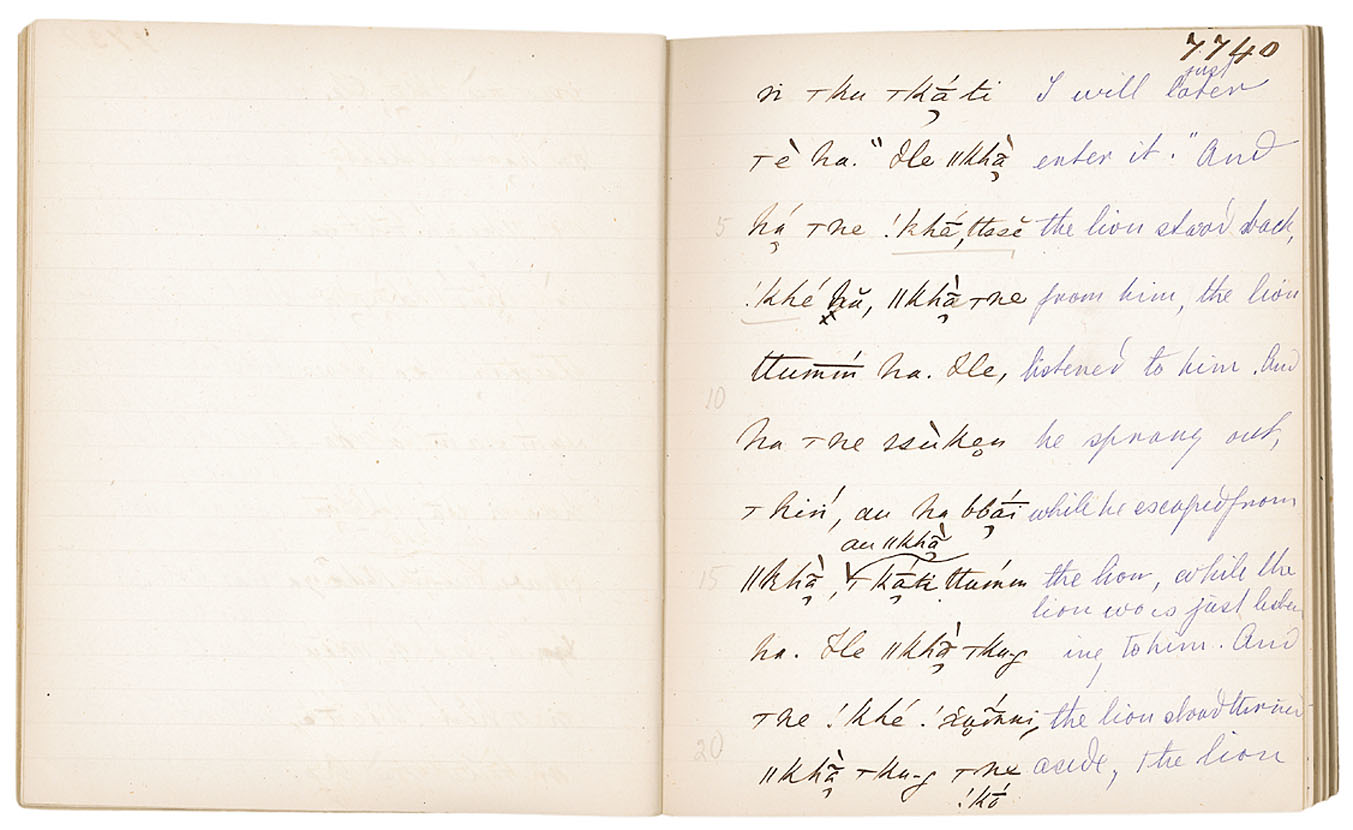 7740
n ⊤ku ⊤kā́ti I will just later
⊤è ha." He ǁkhā̀ enter it." And
5 há ⊤ne !khé, ttssĕ the lion stood back,
!khé hŭ, ǁkhā̀ ⊤ne from him, the lion
ttumm̄́ ha. He, listened to him. And
10
ha ⊤ne ssùken he sprang out,
⊤hin', au ha bbāí while he escaped from
au ǁkhā̀
15 ǁkhā̀, ⊤kā́ti ttumm̄́ the lion, while the
lion was just listen
ha. He ǁkhā̀ ⊤ku-g ing to him. And
⊤ne !khé the lion stood turned
20 ǁkhā̀ ⊤ku-g ⊤ne aside, the lion
!kṓ